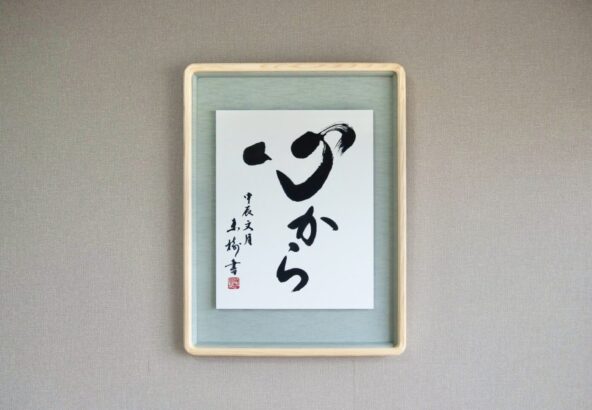 心から
甲辰文月
東樹書